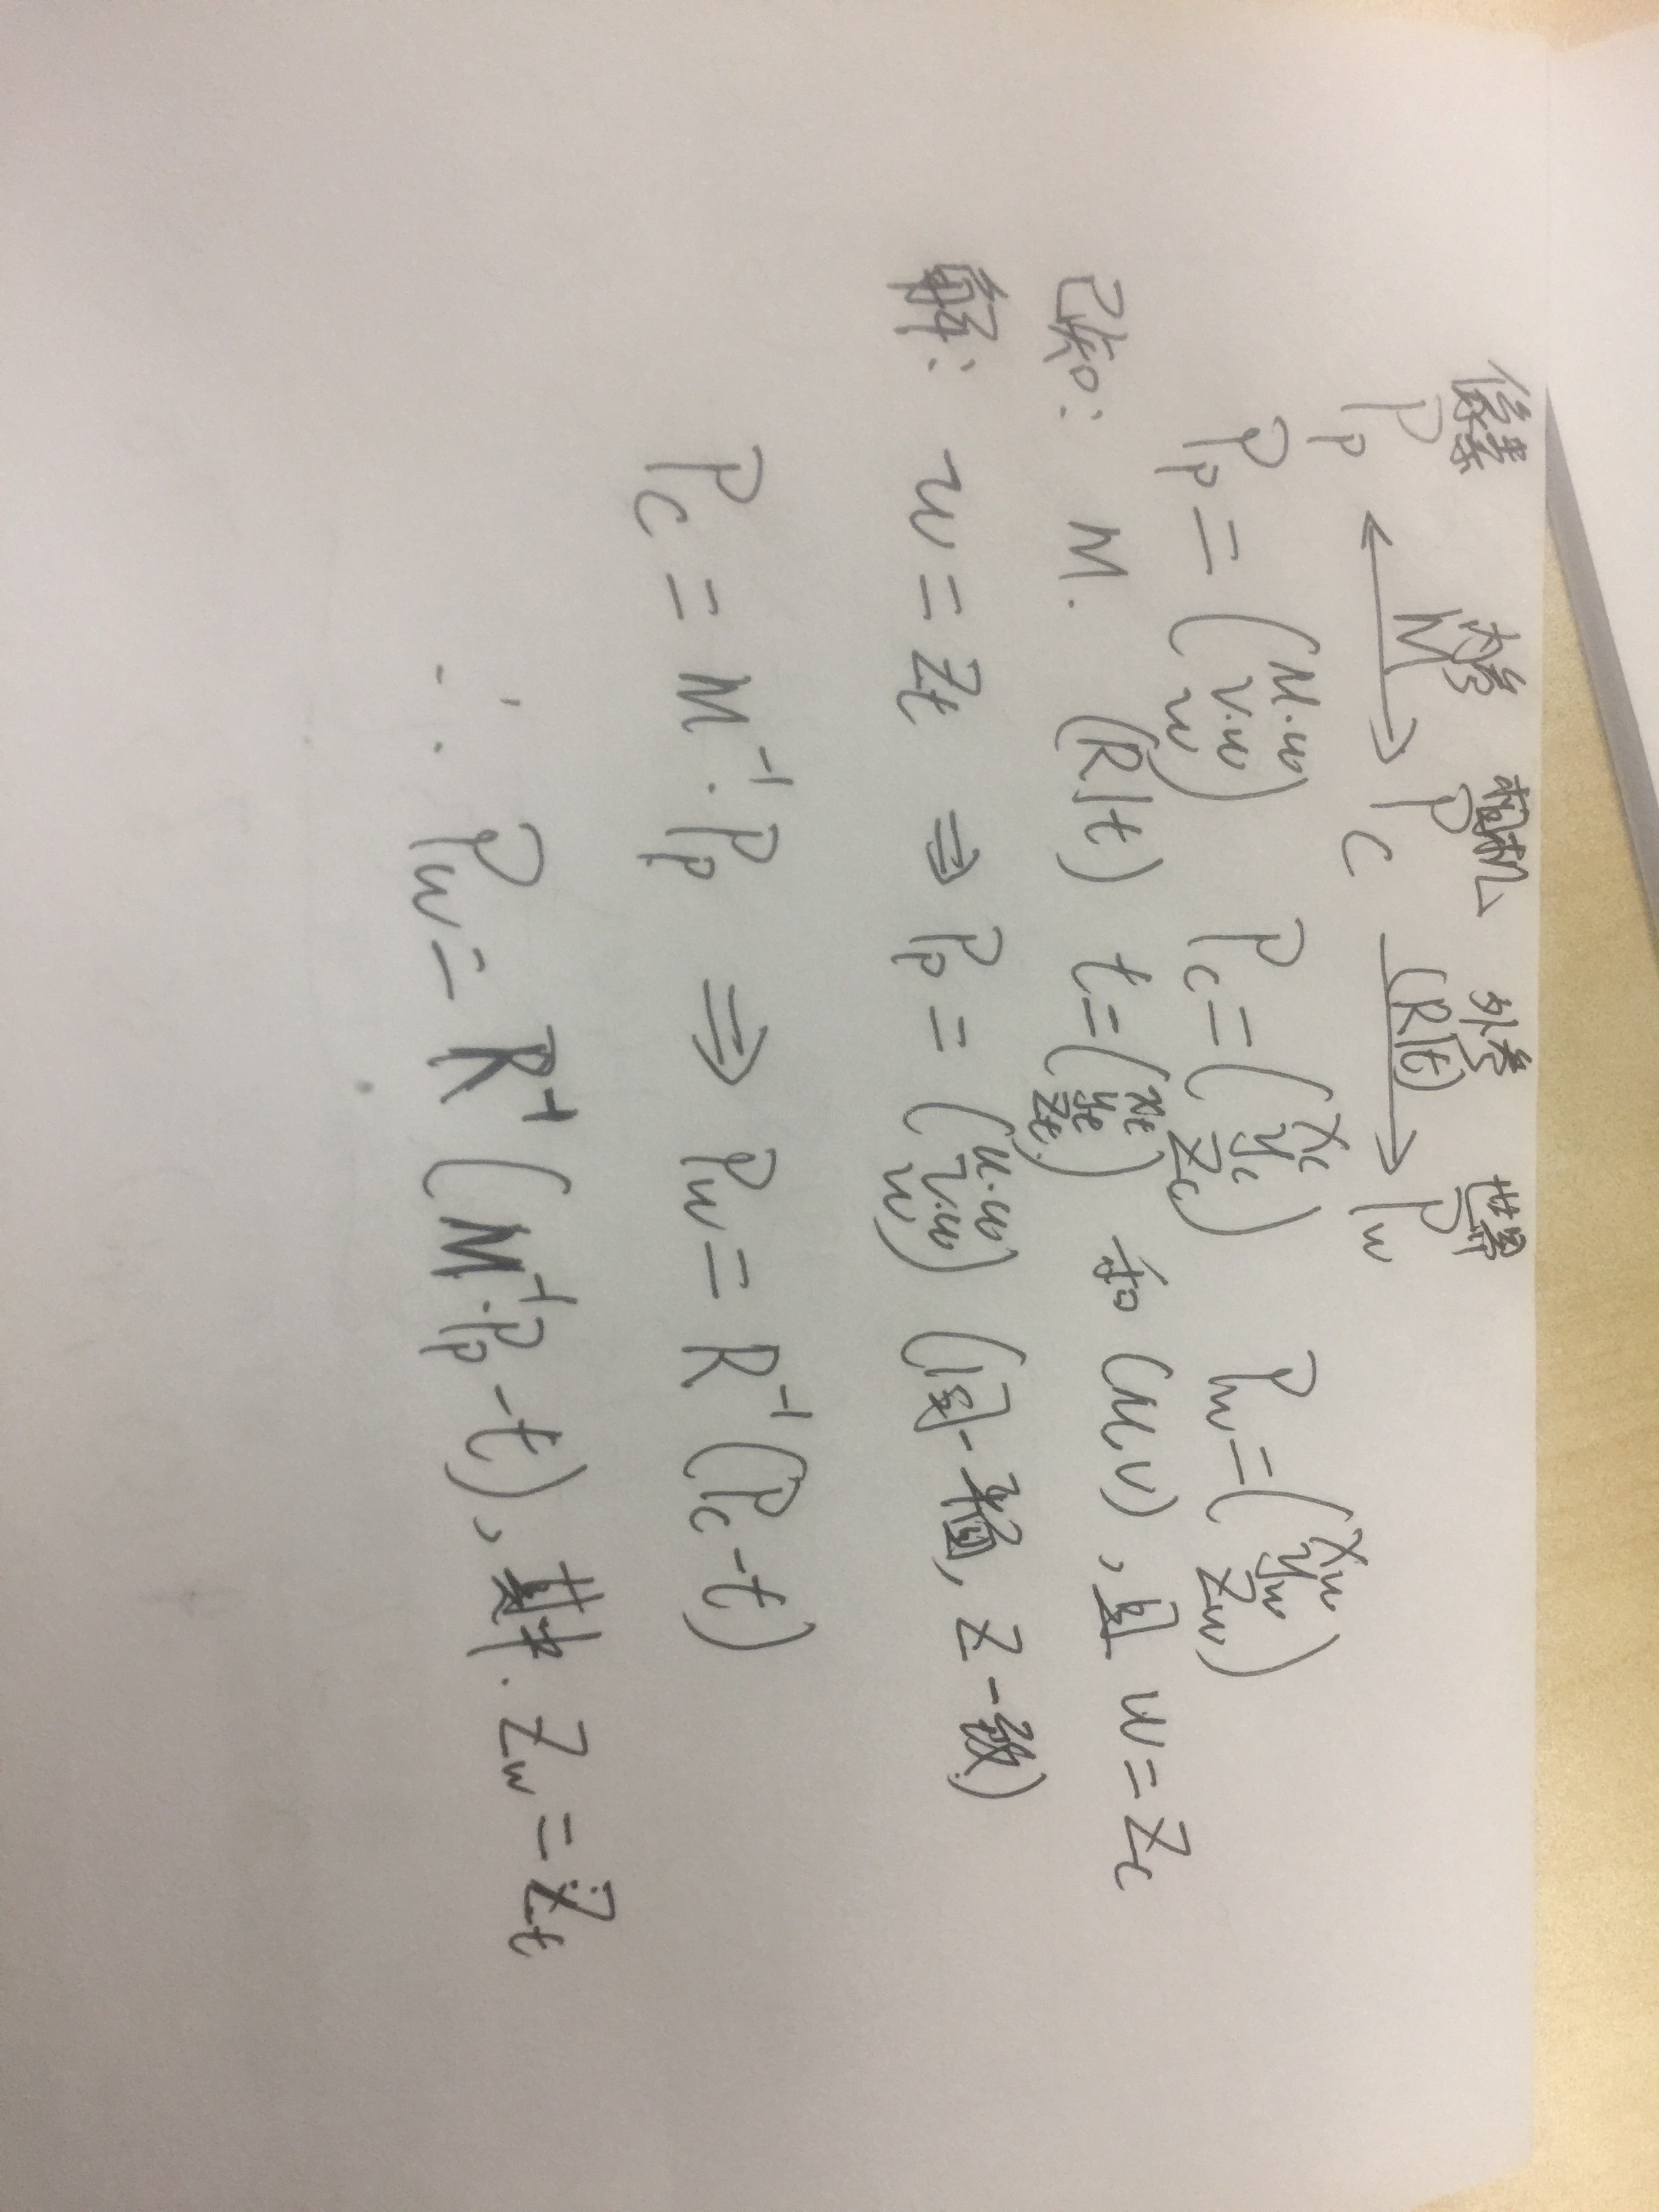 像素 内参 相机 外参 世界
P_p ⟷ M P_c ⟶ (R|t) P_w
P_p = (u·w v·w w) P_c = (x_c y_c z_c) P_w = (x_w y_w z_w)
已知: M. (R|t) t = (x_t y_t z_t) 和 (u,v), 且 w = z_c
解: w = z_t ⇒ P_p = (u·w v·w w) (同一平面, z一致)
P_c = M⁻¹·P_p ⇒ P_w = R⁻¹(P_c - t)
∴ P_w = R⁻¹(M⁻¹·P_p - t), 其中. z_w = z_t